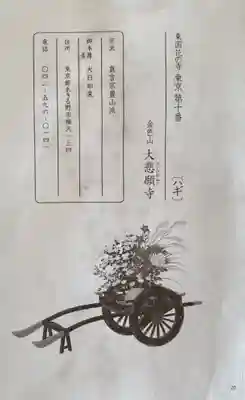 東国花の寺 東京 第十番
〔ハギ〕
金色山 大悲願寺
宗派 真言宗豊山派
御本尊 大日如来
住所 東京都あきる野市横沢一三四
電話 〇四二-五九六-〇一四一